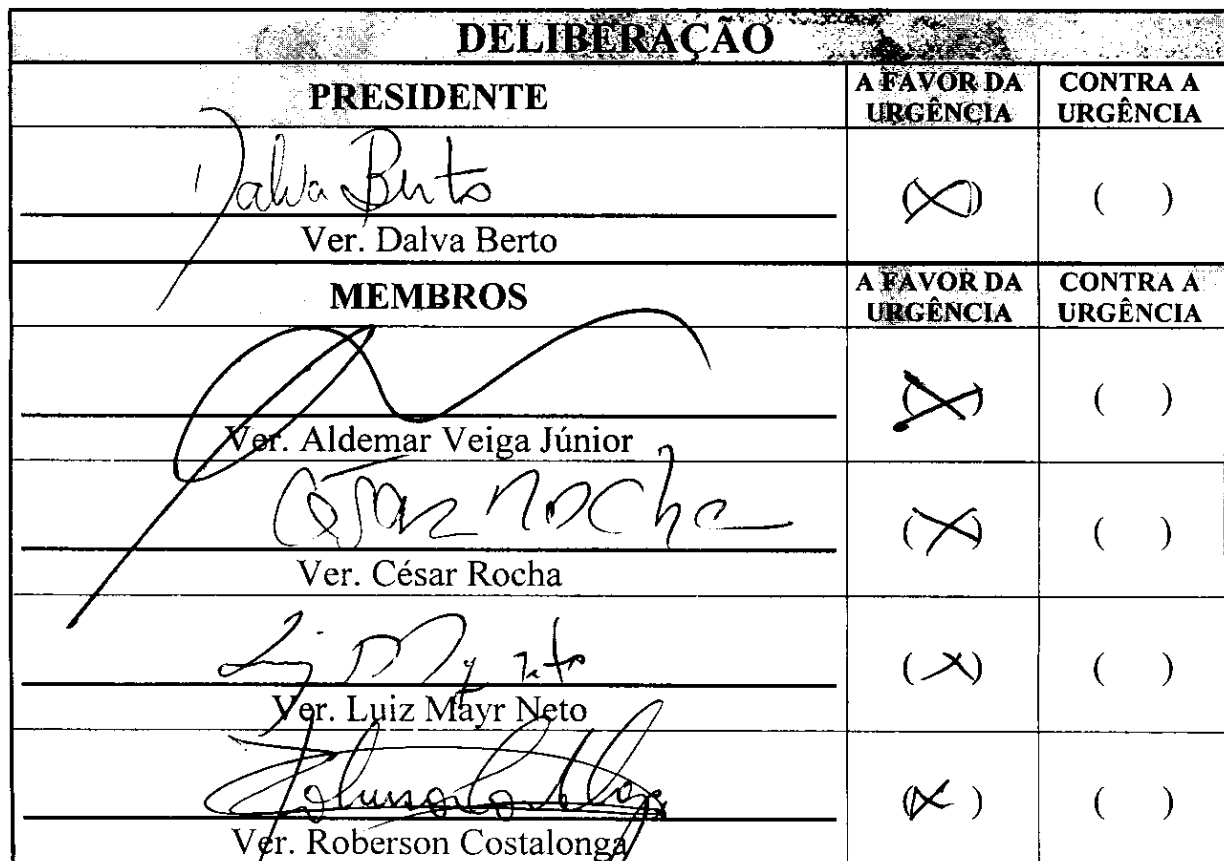 DELIBERAÇÃO
PRESIDENTE
A FAVOR DA URGÊNCIA
CONTRA A URGÊNCIA
Dalva Berto
(X)
( )
Ver. Dalva Berto
MEMBROS
A FAVOR DA URGÊNCIA
CONTRA A URGÊNCIA
(X)
( )
Ver. Aldemar Veiga Júnior
César Rocha
(X)
( )
Ver. César Rocha
(X)
( )
Ver. Luiz Mayr Neto
(X)
( )
Ver. Roberson Costalonga